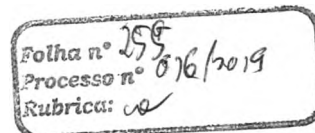 Folha nº 259
Processo nº 016/2019
Rubrica: